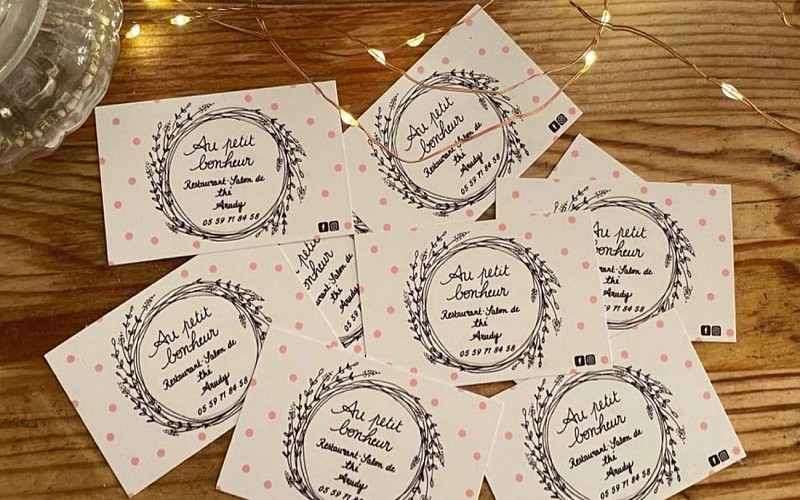 Au petit
bonheur
Restaurant-Salon de
thé
Arudy
05 59 71 84 58
Au petit
bonheur
Restaurant-Salon de
thé
Arudy
05 59 71 84 58
petit
bonheur
Restaurant-Salon de
thé
Arudy
petit
Au petit
bonheur
Restaurant-Salon de
thé
Arudy
05 59 71 84 58
Au petit
bonheur
Restaurant-Salon de
thé
Arudy
05 59 71 84 58
Au petit
bonheur
Restaurant-Salon de
thé
Arudy
05 59 71 84 58
Au petit
bonheur
Restaurant-Salon de
thé
Arudy
05 59 71 84 58